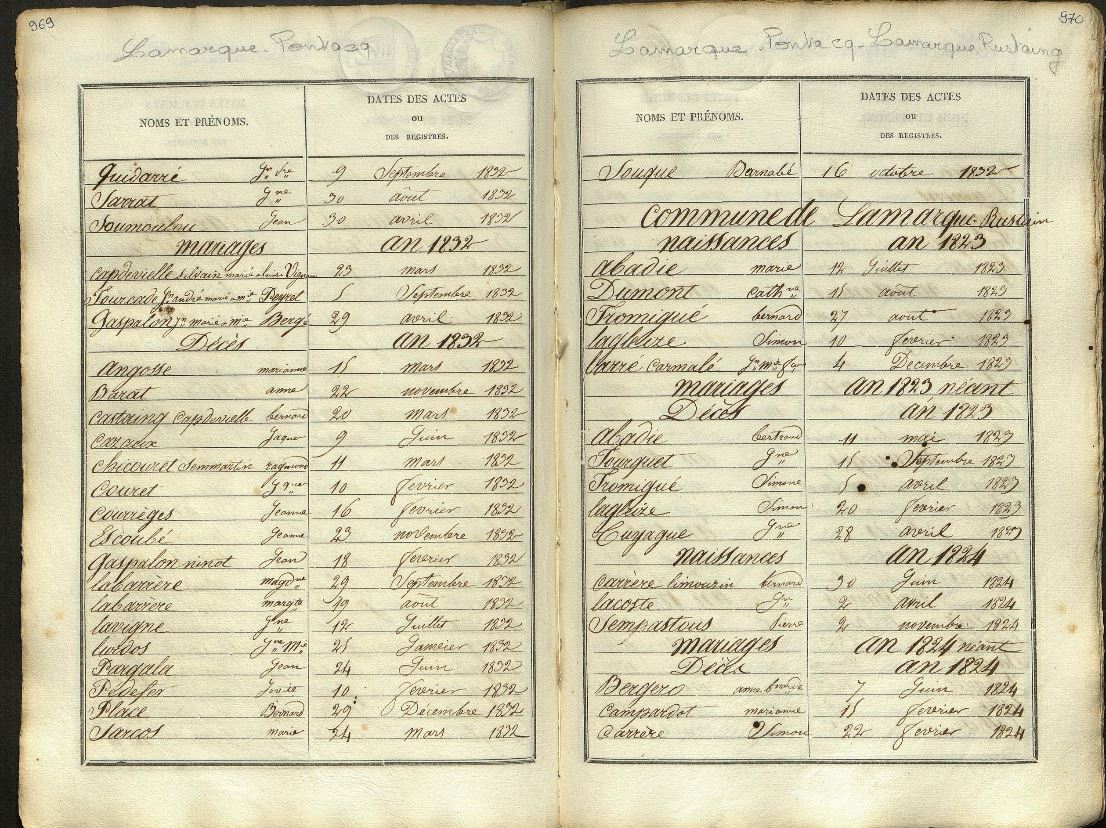 969
Lamarque-Pontacq
NOMS ET PRÉNOMS. DATES DES ACTES
OU
DES REGISTRES.
Guidarré 9 Septembre 1832
Sarrat Gne 30 août 1832
Soumoulou Jean 30 avril 1832
mariages an 1832
Capdevielle Silvain marié à 23 mars 1832
Fourcade Jn andré marié à mie Peyret 5 Septembre 1832
Gaspalon Jn marié à mie Bergé 29 avril 1832
Décès an 1832
Angosse marianne 15 mars 1832
Barat anne 22 novembre 1832
Castaing Capdevielle bernard 20 mars 1832
Cazaux Jaque 9 Juin 1832
Chicouret Semmartin raymond 11 mars 1832
Couret 10 fevrier 1832
Courrèges Jeanne 16 fevrier 1832
Escoubé Jeanne 23 novembre 1832
Gaspalon ninot Jean 18 fevrier 1832
labarrère magdne 29 Septembre 1832
labarrère margte 19 août 1832
lavigne Jne 12 Juillet 1832
lurdos Jne Mie 25 Janvier 1832
Pargala Jean 24 Juin 1832
Pédefer 10 fevrier 1832
Place Bernard 29 Décembre 1832
Sarcos marie 24 mars 1832
970
Lamarque-Pontacq-Lamarque Rustaing
NOMS ET PRÉNOMS. DATES DES ACTES
OU
DES REGISTRES.
Souque Bernabé 16 octobre 1832
Commune de Lamarque-Rustain
naissances an 1823
abadie marie 12 Juillet 1823
Dumont Cathne 11 août 1823
Fromigué bernard 27 avout 1823
laglèize Simon 10 fevrier 1823
Carmalé 4 Décembre 1823
mariages an 1823 néant
Décès an 1823
abadie bertrand 11 mai 1823
Fourguet Gne 15 Septembre 1823
Fromigué Simone 5 avril 1823
laglèize Simon 20 fevrier 1823
Cuyaque Jne 28 avril 1823
naissances an 1824
Carrère limouzin bernard 30 Juin 1824
lacoste 2 avril 1824
Sempastous Pierre 2 novembre 1824
mariages an 1824 néant
Décès an 1824
Bergero 7 Juin 1824
Campardot marianne 15 fevrier 1824
Carrère Simon 22 fevrier 1824